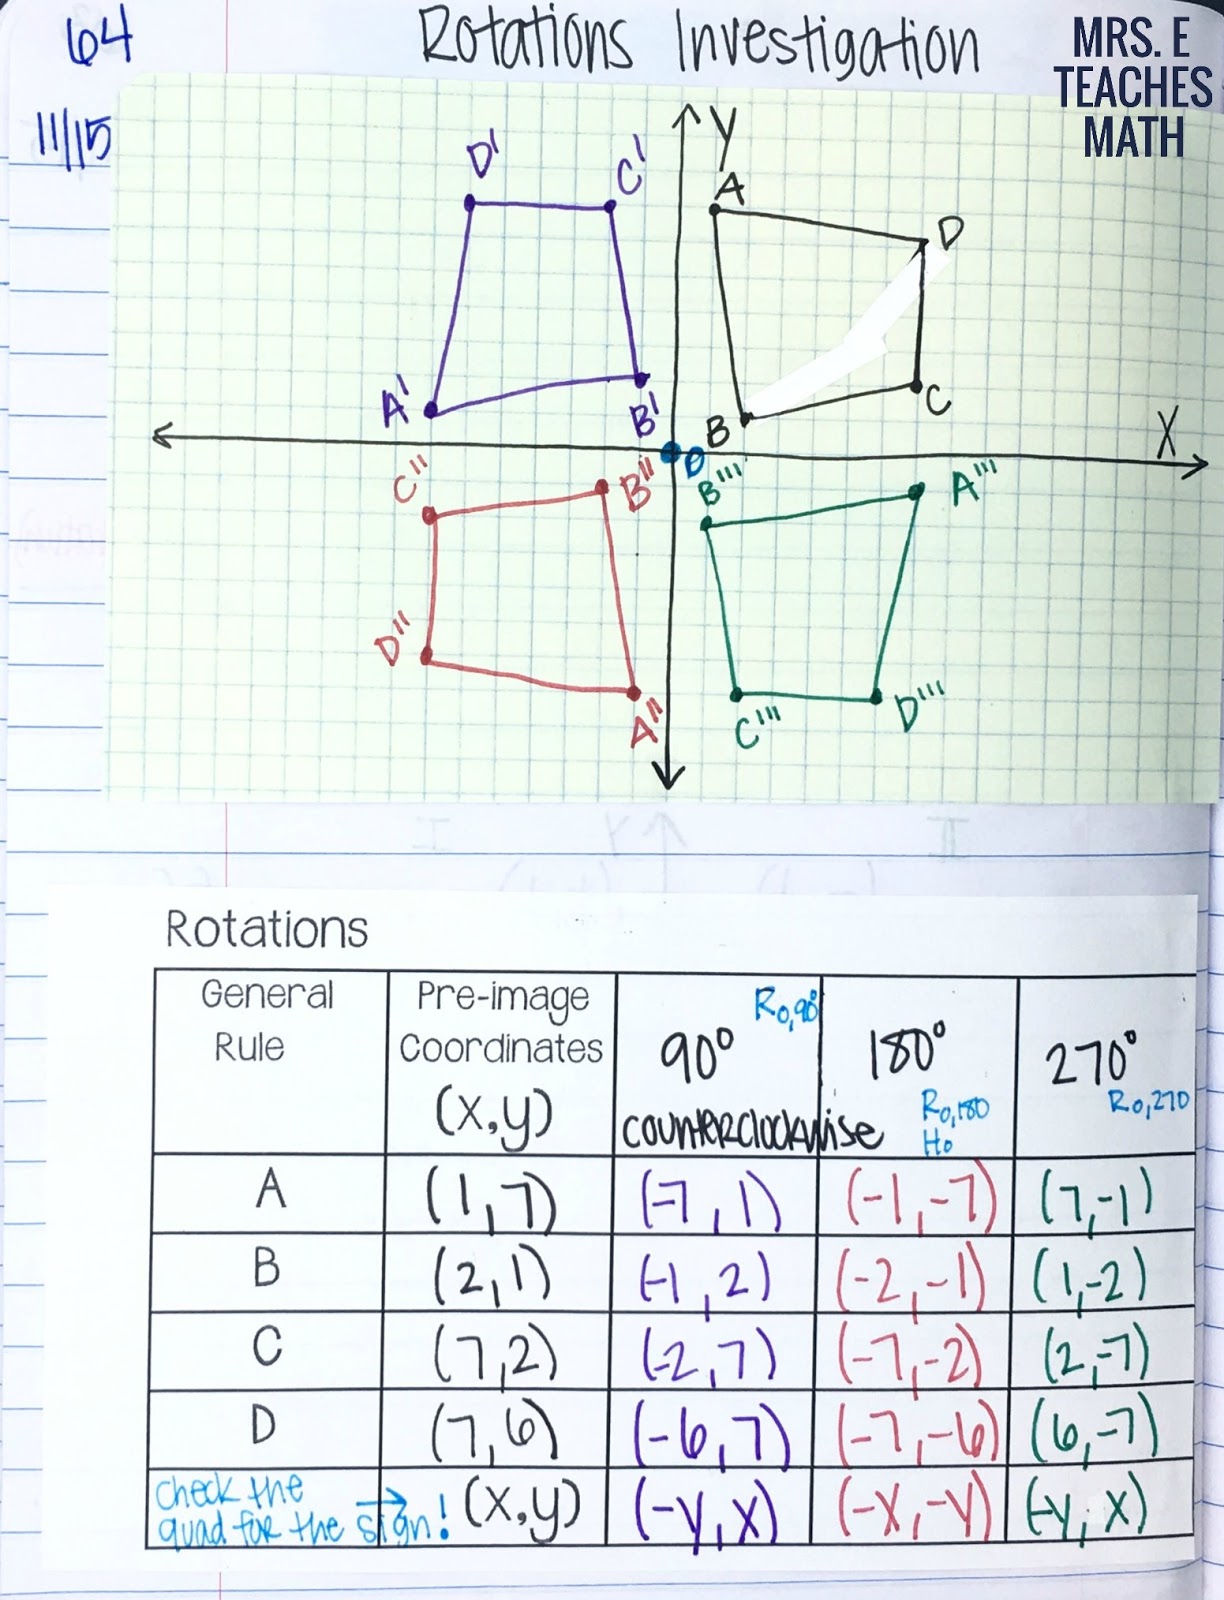 64
Rotations Investigation
MRS. E
TEACHES
MATH
11/15
Y
D'
C'
A
D
A'
B'
B
C
X
O
C''
B''
B'''
A'''
D''
A''
C'''
D'''
Rotations
General
Rule
Pre-image
Coordinates
(x,y)
90°
R0,90°
counterclockwise
180°
R0,180
H0
270°
R0,270
A (1,7) (-7,1) (-1,-7) (7,-1)
B (2,1) (-1,2) (-2,-1) (1,-2)
C (7,2) (-2,7) (-7,-2) (2,-7)
D (7,6) (-6,7) (-7,-6) (6,-7)
check the
quad for the sign! → (x,y) (-y,x) (-x,-y) (-y, x)